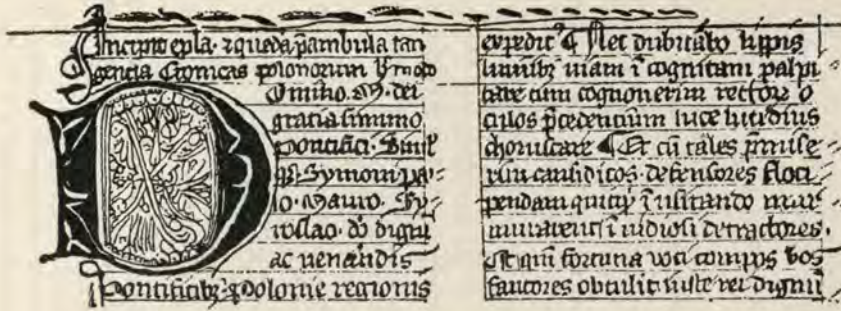 Incipit epla · ⁊ queda p̄ambula tan
gencia Cronicas polonorum
Domino · M · dei
gratia summo
pontifici · Siml̛
qȝ · Symoni pau⸗
lo · Mauro · Sy⸗
roslao · dō dignis
ac uenerandis
Pontificibȝ · Polonie regionis
expedit ¶ Nec dubitabo lippis
luminibȝ uiam ī cognitam palpi⸗
tare cum cognouerim rectorū o
culos p̄cedencium luce lucidius
choruscare ¶ Et cū tales p̄mise⸗
rim causidicos · defensores floci
pendam quicq̄ ī usitando mur⸗
murauerint ī uidiosi detractores ·
Et qm̄ fortuna uoti compos uos
fautores obtulit iuste rei dignū